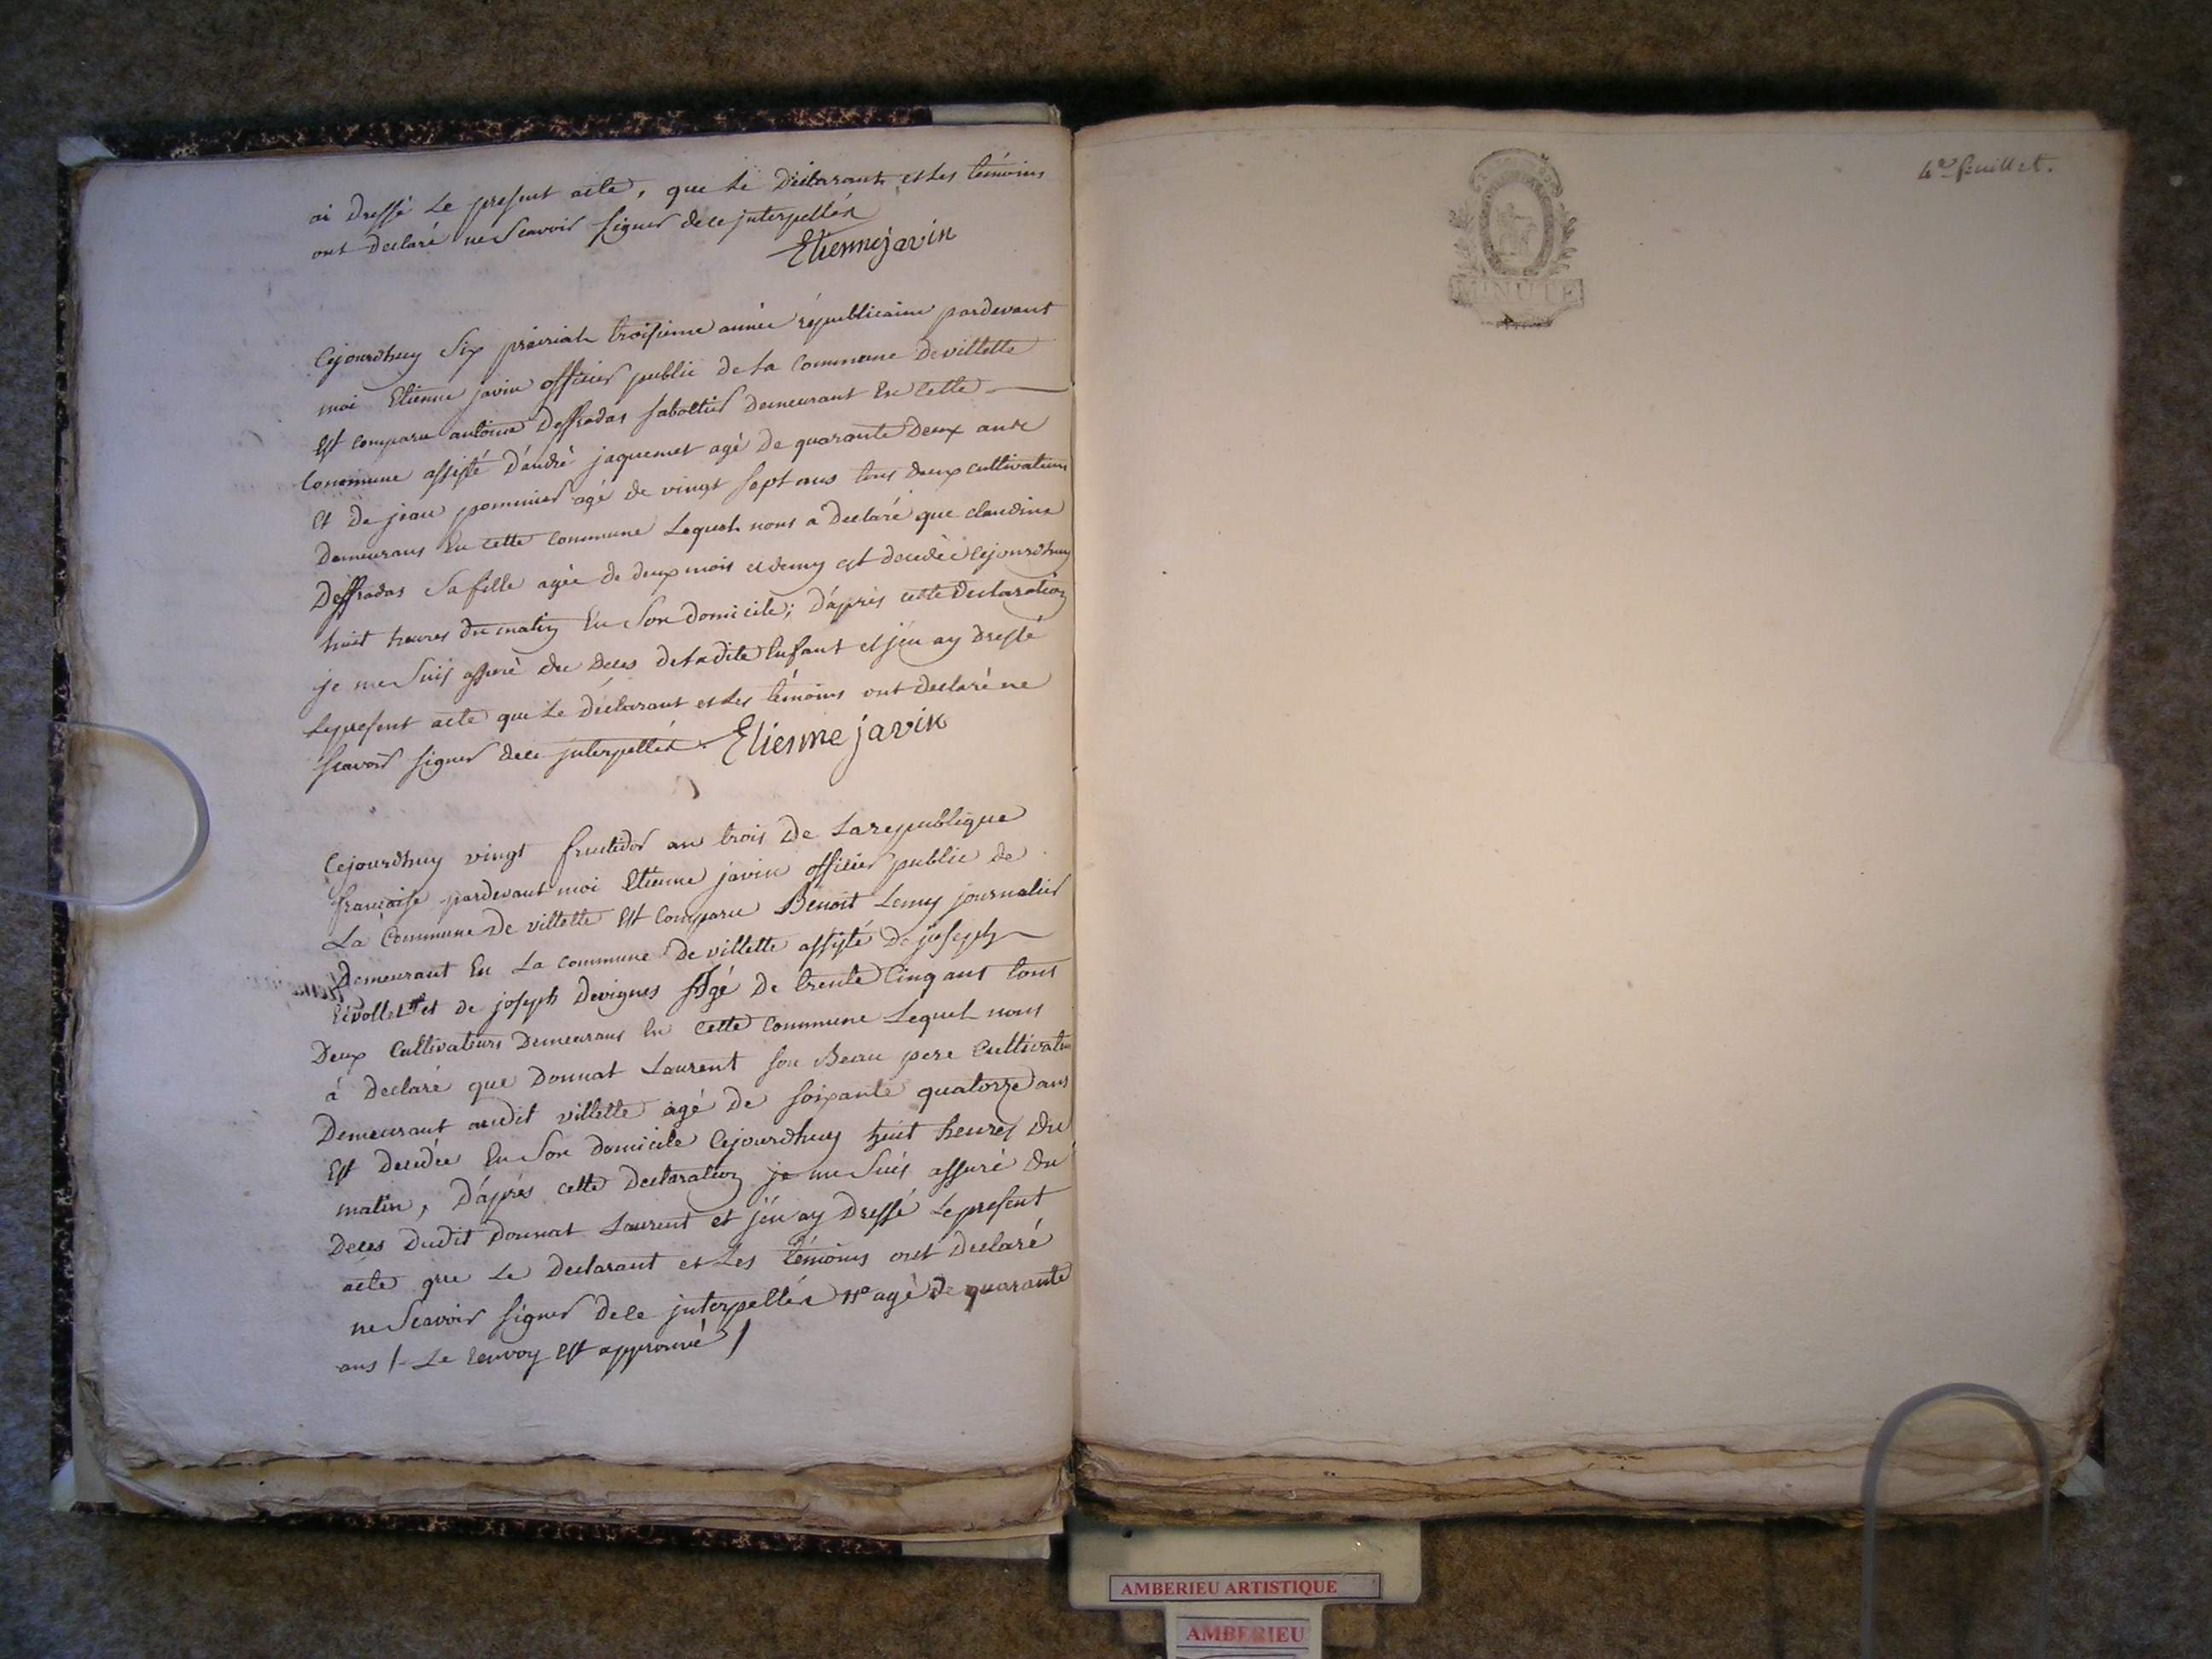 ai dressé Le present acte, que Le Déclarant et Les témoins
ont declaré ne Scavoir signer dece jnterpellés
Etienne javin
Cejourdhuy Six prairial troisieme année républicaine pardevant
moi Etienne javin officier public de La Commune de villette
Est comparu antoine Deffradas sabottier demeurant En Cette
Commune assisté D'andré jaquemet agé De quarante Deux ans
Et De jean pommier agé de vingt sept ans tous deux cultivateurs
Demeurans En cette commune Lequel nous a Declaré que claudine
Deffradas Sa fille agée de deux mois et demy est decedée cejourdhuy
huit heures du matin En Son domicile; D'après cette Declaration
je me Suis assuré du Deces de Ladite Enfant et j'en ay dressé
Le present acte que Le Déclarant et Les témoins ont declaré ne
scavoir signer dece jnterpellés. Etienne javin
Cejourdhuy vingt fructidor an trois De La republique
francaise pardevant moi Etienne javin officier public de
La Commune De villette Est Comparu Benoit Lemy journalier
Demeurant En La commune De villette assisté De joseph
et de joseph Devignes Agé De trente Cinq ans tous
Deux Cultivateurs Demeurans En Cette Commune Lequel nous
à Declaré que Donnat Laurent son Beau pere Cultivateur
Demeurant audit villette agé De soixante quatorze ans
Est Decedée En Son domicile Cejourdhuy huit heures Du
matin, D'après cette Declaration je me Suis assuré Du
Deces Dudit Donnat Laurent et j'en ay Dressé Le present
acte que Le Declarant et Les témoins ont declaré
ne Scavoir signer De ce jnterpellés # agé De quarante
ans /. Le renvoy Est approuvé /
4e feuillet.
MINUTE
AMBERIEU ARTISTIQUE
AMBERIEU